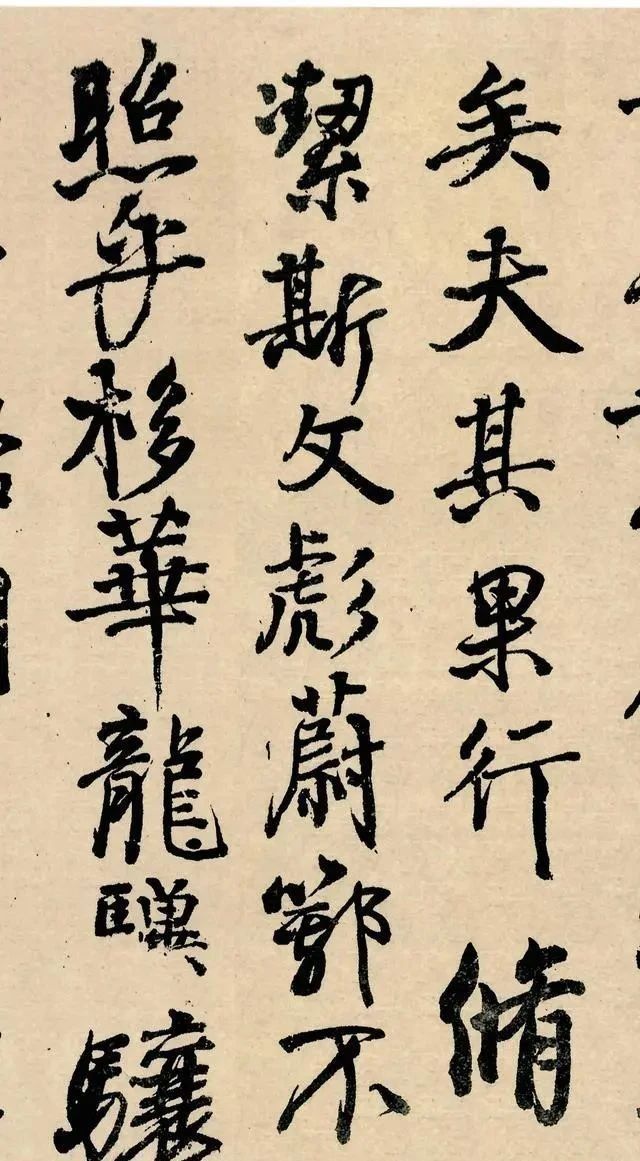 矣夫其果行脩
潔斯文彪蔚鄂不
照乎栘華龍驥驤